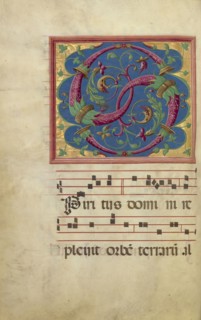 SPiri tus domi ni re
pleuit orbē terrarū al